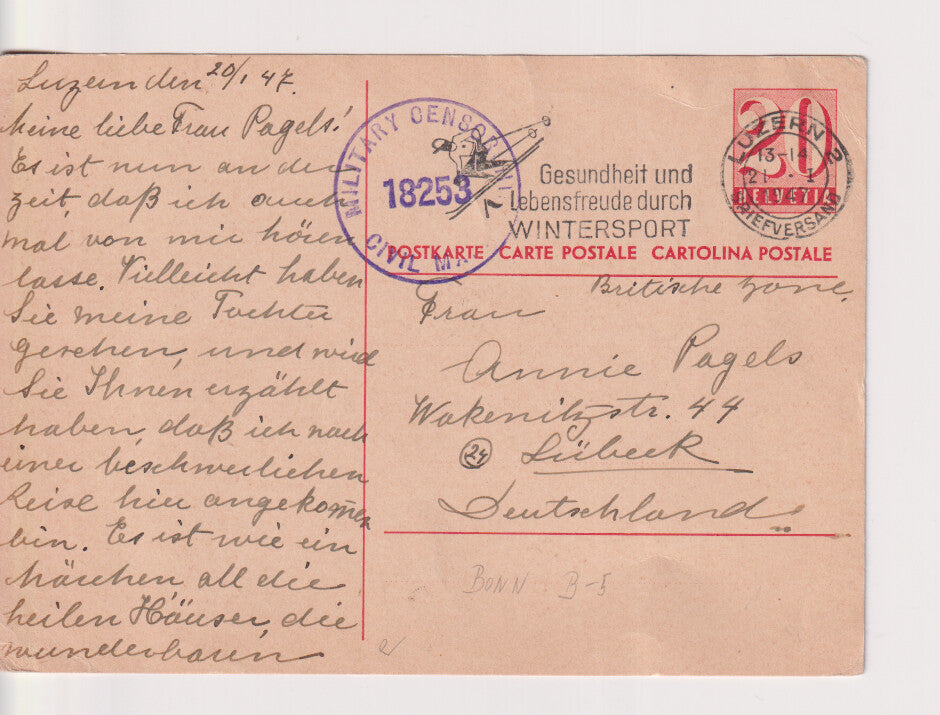 Luzern den 20/1 47.
Meine liebe Frau Pagels!
Es ist nun an der
Zeit, daß ich auch
mal von mir hören
lasse. Vielleicht haben
Sie meine Tochter
gesehen, und wird
Sie Ihnen erzählt
haben, daß ich nach
einer beschwerlichen
Reise hier angekommen
bin. Es ist wie ein
Märchen all die
heilen Häuser, die
wunderbaren
MILITARY CENSORSHIP
18253
CIVIL MA
Gesundheit und
Lebensfreude durch
WINTERSPORT
20
HELVETIA
LUZERN 2
13-14
21. I
1947
BRIEFVERSAND
POSTKARTE CARTE POSTALE CARTOLINA POSTALE
Britische Zone.
Frau
Annie Pagels
Wakenitzstr. 44
24 Lübeck
Deutschland
BONN B-5